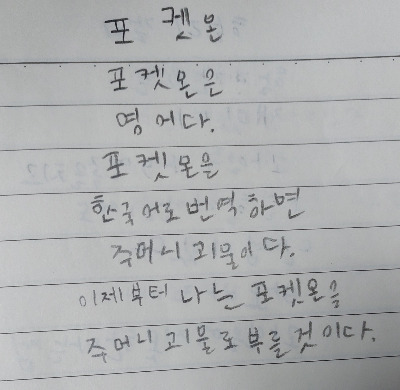 포켓몬
포켓몬은
영어다.
포켓몬을
한국어로 번역하면
주머니 괴물이다.
이제부터 나는 포켓몬을
주머니 괴물로 부를 것이다.